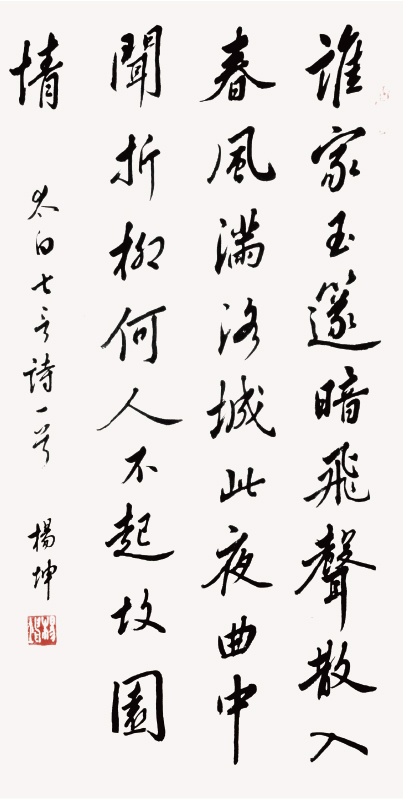 誰家玉篴暗飛聲散入
春風滿洛城此夜曲中
聞折柳何人不起故園
情
太白七言詩一首 楊坤